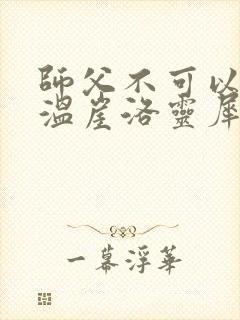 師父不可以
溫崖洛靈犀
一幕浮華